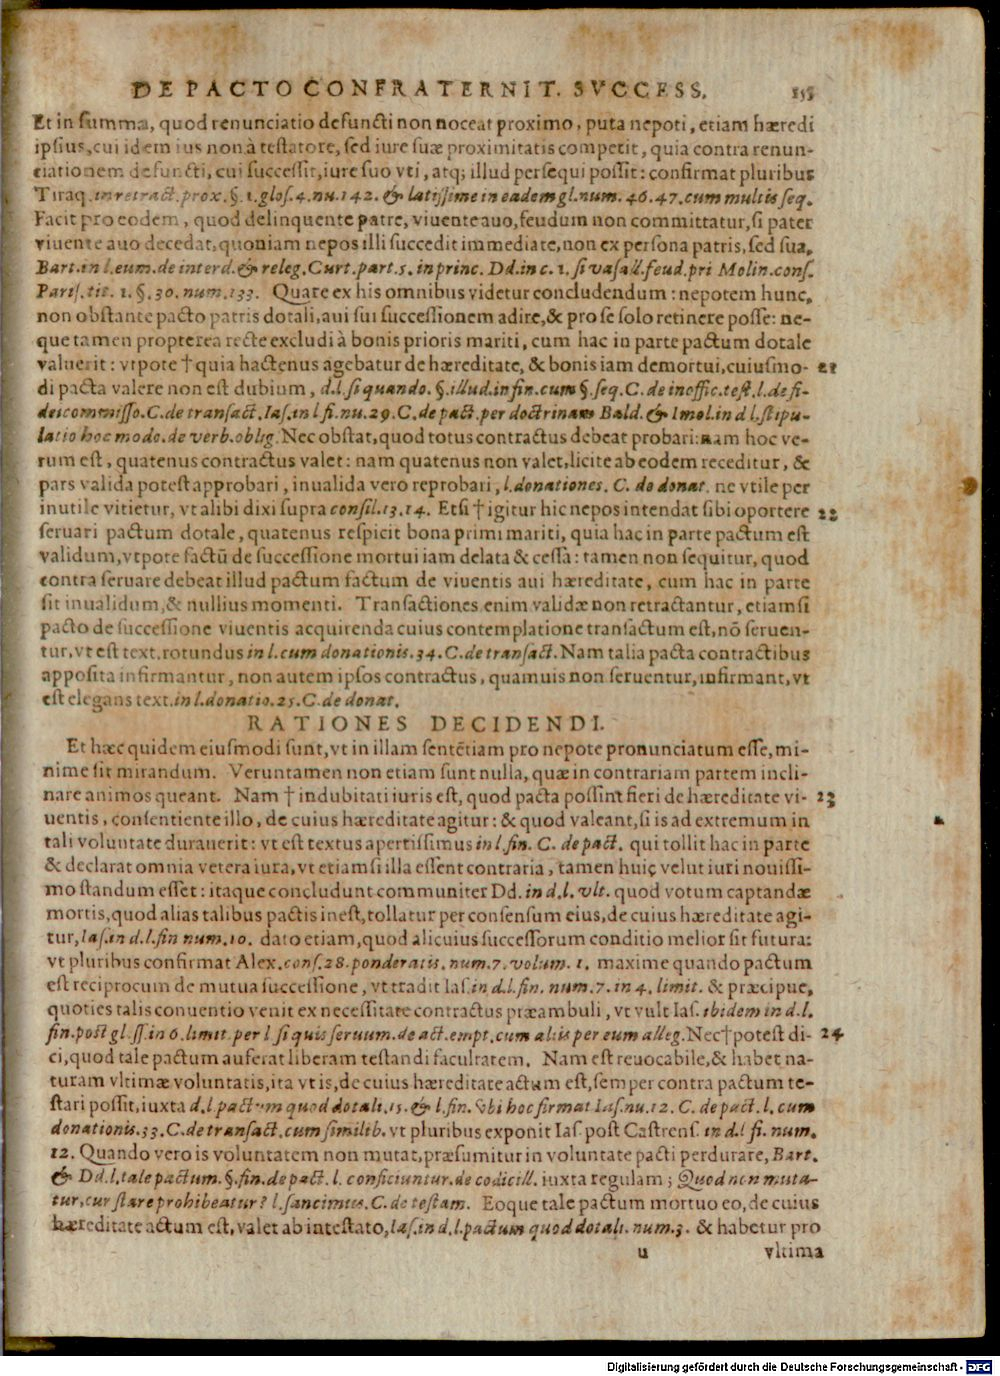 DE PACTO CONFRATERNIT. SVCCESS. 155
Et in summa, quod renunciatio defuncti non noceat proximo, puta nepoti, etiam hæredi
ipsius, cui idem ius non à testatore, sed iure suæ proximitatis competit, quia contra renun-
ciationem defuncti, cui successit, iure suo vti, atq; illud persequi possit: confirmat pluribus
Tiraq. in retract. prox. §. 1. glos. 4. nu. 142. & latissime in eadem gl. num. 46. 47. cum multis seq.
Facit pro eodem, quod delinquente patre, viuente auo, feudum non committatur, si pater
viuente auo decedat, quoniam nepos illi succedit immediate, non ex persona patris, sed sua,
Bart. in l. eum. de interd. & releg. Curt. part. 5. in princ. Dd. in c. 1. si vasall. feud. pri Molin. cons.
Paris. tit. 1. §. 30. num. 133. Quare ex his omnibus videtur concludendum: nepotem hunc,
non obstante pacto patris dotali, aui sui successionem adire, & pro se solo retinere posse: ne-
que tamen propterea recte excludi à bonis prioris mariti, cum hac in parte pactum dotale
valuerit: vtpote † quia hactenus agebatur de hæreditate, & bonis iam demortui, cuiusmo- 21
di pacta valere non est dubium, d. l. si quando. §. illud. in fin. cum §. seq. C. de inoffic. test. l. de fi-
deicommisso. C. de transact. Ias. in l fi. nu. 29. C. de pact. per doctrinam Bald. & Imol. in d l. stipu-
latio hoc modo. de verb. oblig. Nec obstat, quod totus contractus debeat probari: nam hoc ve-
rum est, quatenus contractus valet: nam quatenus non valet, licite ab eodem receditur, &
pars valida potest approbari, inualida vero reprobari, l. donationes. C. de donat. ne vtile per
inutile vitietur, vt alibi dixi supra consil. 13. 14. Etsi † igitur hic nepos intendat sibi oportere 22
seruari pactum dotale, quatenus respicit bona primi mariti, quia hac in parte pactum est
validum, vtpote factū de successione mortui iam delata & cessa: tamen non sequitur, quod
contra seruare debeat illud pactum factum de viuentis aui hæreditate, cum hac in parte
sit inualidum, & nullius momenti. Transactiones enim validæ non retractantur, etiamsi
pacto de successione viuentis acquirenda cuius contemplatione transactum est, nō seruen-
tur, vt est text. rotundus in l. cum donationis. 34. C. de transact. Nam talia pacta contractibus
apposita infirmantur, non autem ipsos contractus, quamuis non seruentur, infirmant, vt
est elegans text. in l. donatio. 25. C. de donat.
RATIONES DECIDENDI.
Et hæc quidem eiusmodi sunt, vt in illam sentētiam pro nepote pronunciatum esse, mi-
nime sit mirandum. Veruntamen non etiam sunt nulla, quæ in contrariam partem incli-
nare animos queant. Nam † indubitati iuris est, quod pacta possint fieri de hæreditate vi- 23
uentis, consentiente illo, de cuius hæreditate agitur: & quod valeant, si is ad extremum in
tali voluntate durauerit: vt est textus apertissimus in l. fin. C. de pact. qui tollit hac in parte
& declarat omnia vetera iura, vt etiamsi illa essent contraria, tamen huic velut iuri nouissi-
mo standum esset: itaque concludunt communiter Dd. in d. l. vlt. quod votum captandæ
mortis, quod alias talibus pactis inest, tollatur per consensum eius, de cuius hæreditate agi-
tur, Ias. in d. l. fin num. 10. dato etiam, quod alicuius successorum conditio melior sit futura:
vt pluribus confirmat Alex. cons. 28. ponderatis. num. 7. volum. 1. maxime quando pactum
est reciprocum de mutua successione, vt tradit Ias. in d. l. fin. num. 7. in 4. limit. & præcipue,
quoties talis conuentio venit ex necessitate contractus præambuli, vt vult Ias. ibidem in d. l.
fin. post gl. ff. in 6. limit. per l si quis seruum. de act. empt. cum aliis per eum alleg. Nec † potest di- 24
ci, quod tale pactum auferat liberam testandi facultatem. Nam est reuocabile, & habet na-
turam vltimæ voluntatis, ita vt is, de cuius hæreditate actum est, semper contra pactum te-
stari possit, iuxta d. l. pactum quod dotali. 15. & l. fin. vbi hoc firmat Ias. nu. 12. C. de pact. l. cum
donationis. 33. C. de transact. cum similib. vt pluribus exponit Ias. post Castrens. in d. l fi. num.
12. Quando vero is voluntatem non mutat, præsumitur in voluntate pacti perdurare, Bart.
& Dd. l. tale pactum. §. fin. de pact. l. conficiuntur. de codicill. iuxta regulam; Quod non muta-
tur, cur stare prohibeatur? l. sancimus. C. de testam. Eoque tale pactum mortuo eo, de cuius
hæreditate actum est, valet ab intestato, Ias. in d. l. pactum quod dotali. num. 3. & habetur pro
u vltima
Digitalisierung gefördert durch die Deutsche Forschungsgemeinschaft - DFG